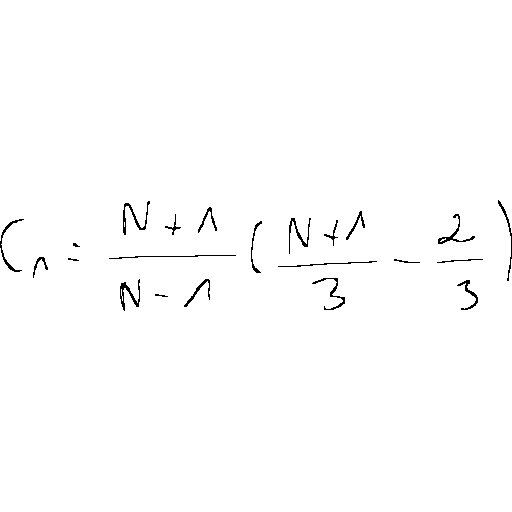 C_1 = \frac{N+1}{N-1} ( \frac{N+1}{3} - \frac{2}{3} )